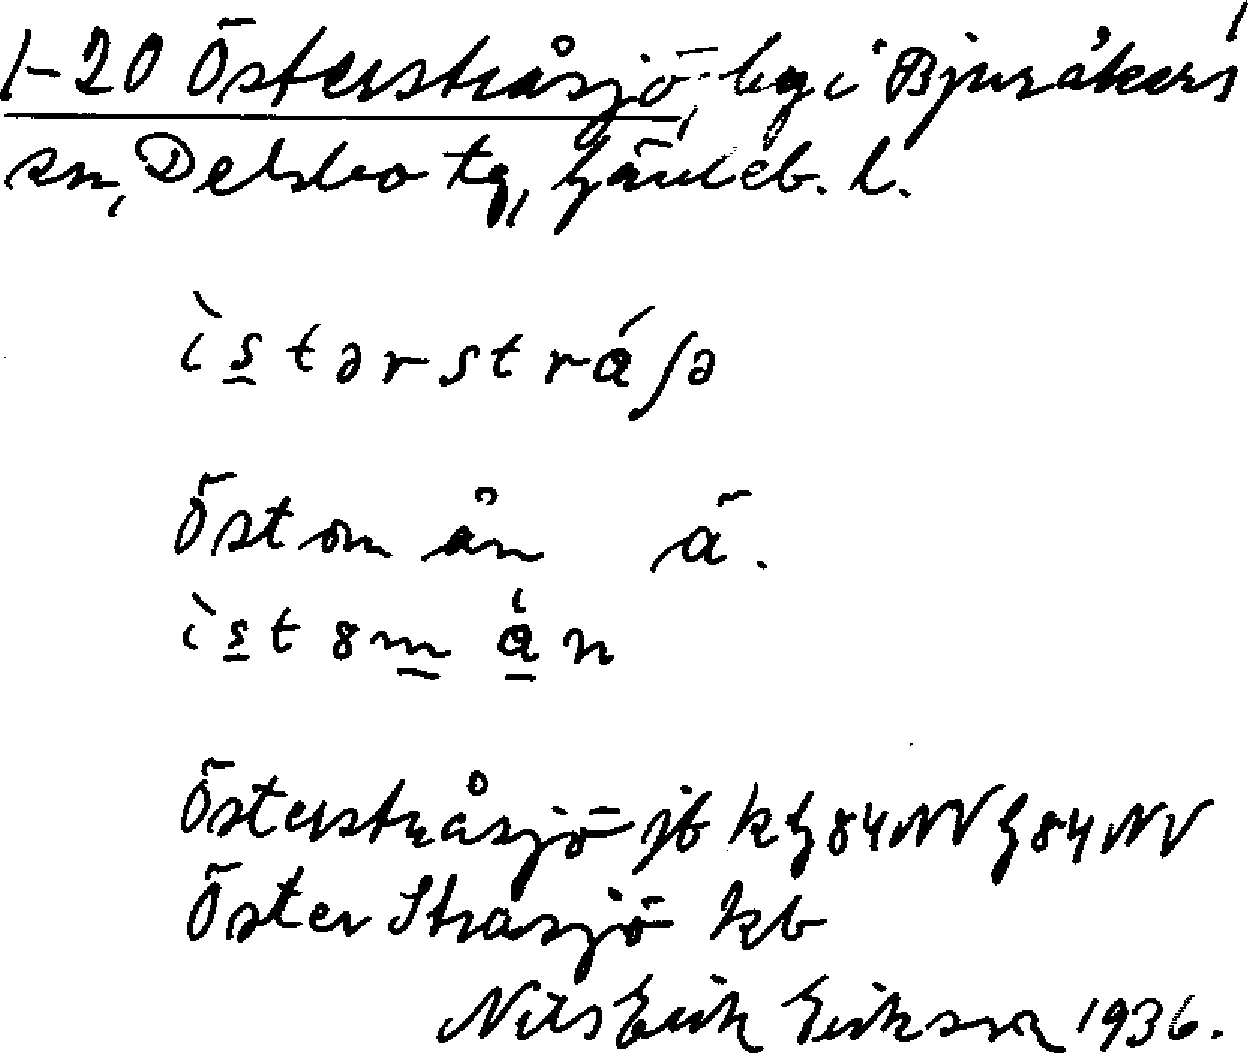 1-20 Österstråsjö, by i Bjuråkers
sn, Delsbo tg, Gävleb. l.
ìs̲tərstráʃə
Öst om ån ä.
ìs̲t8m̲ á̲n
Österstråsjö jb k G84NV G84NV
Öster Strasjö kb
Nils Erik Erikson 1936.